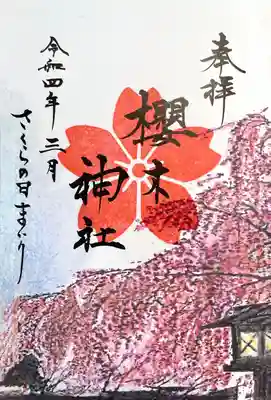 奉拝
櫻木
神社
令和四年 三月
さくらの日まつり